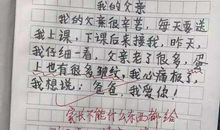 我的父亲
我的父亲很辛苦，每天要送
我上课，下课后来接我，昨天，
我仔细一看，父亲老了很多，蛋
上也有很多皱纹，我心痛极了，
我想说：爸爸，我爱你！
家长不能什么东西都给